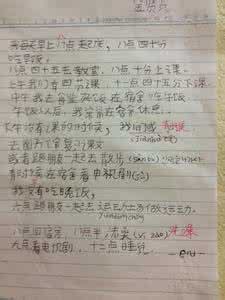 我每天早上八点起床，八点四十分
吃早饭。
八点四十五去教室，八点五十分上课。
上午我们有四节课，十一点四十五分下课。
中午我去食堂
午饭以后，我常常在宿舍休息。
下午没有课的时候，我
去图书馆复习课文
或者跟朋友一起去散步(sànbù)
有时候在宿舍看电视剧(jù)
我没有吃晚饭，
六点跟朋友一起去运动场做运动。
yùndòngchǎng
八点回宿舍，八点半洗澡(xǐ zǎo)
九点看电视剧，十二点睡觉。
end